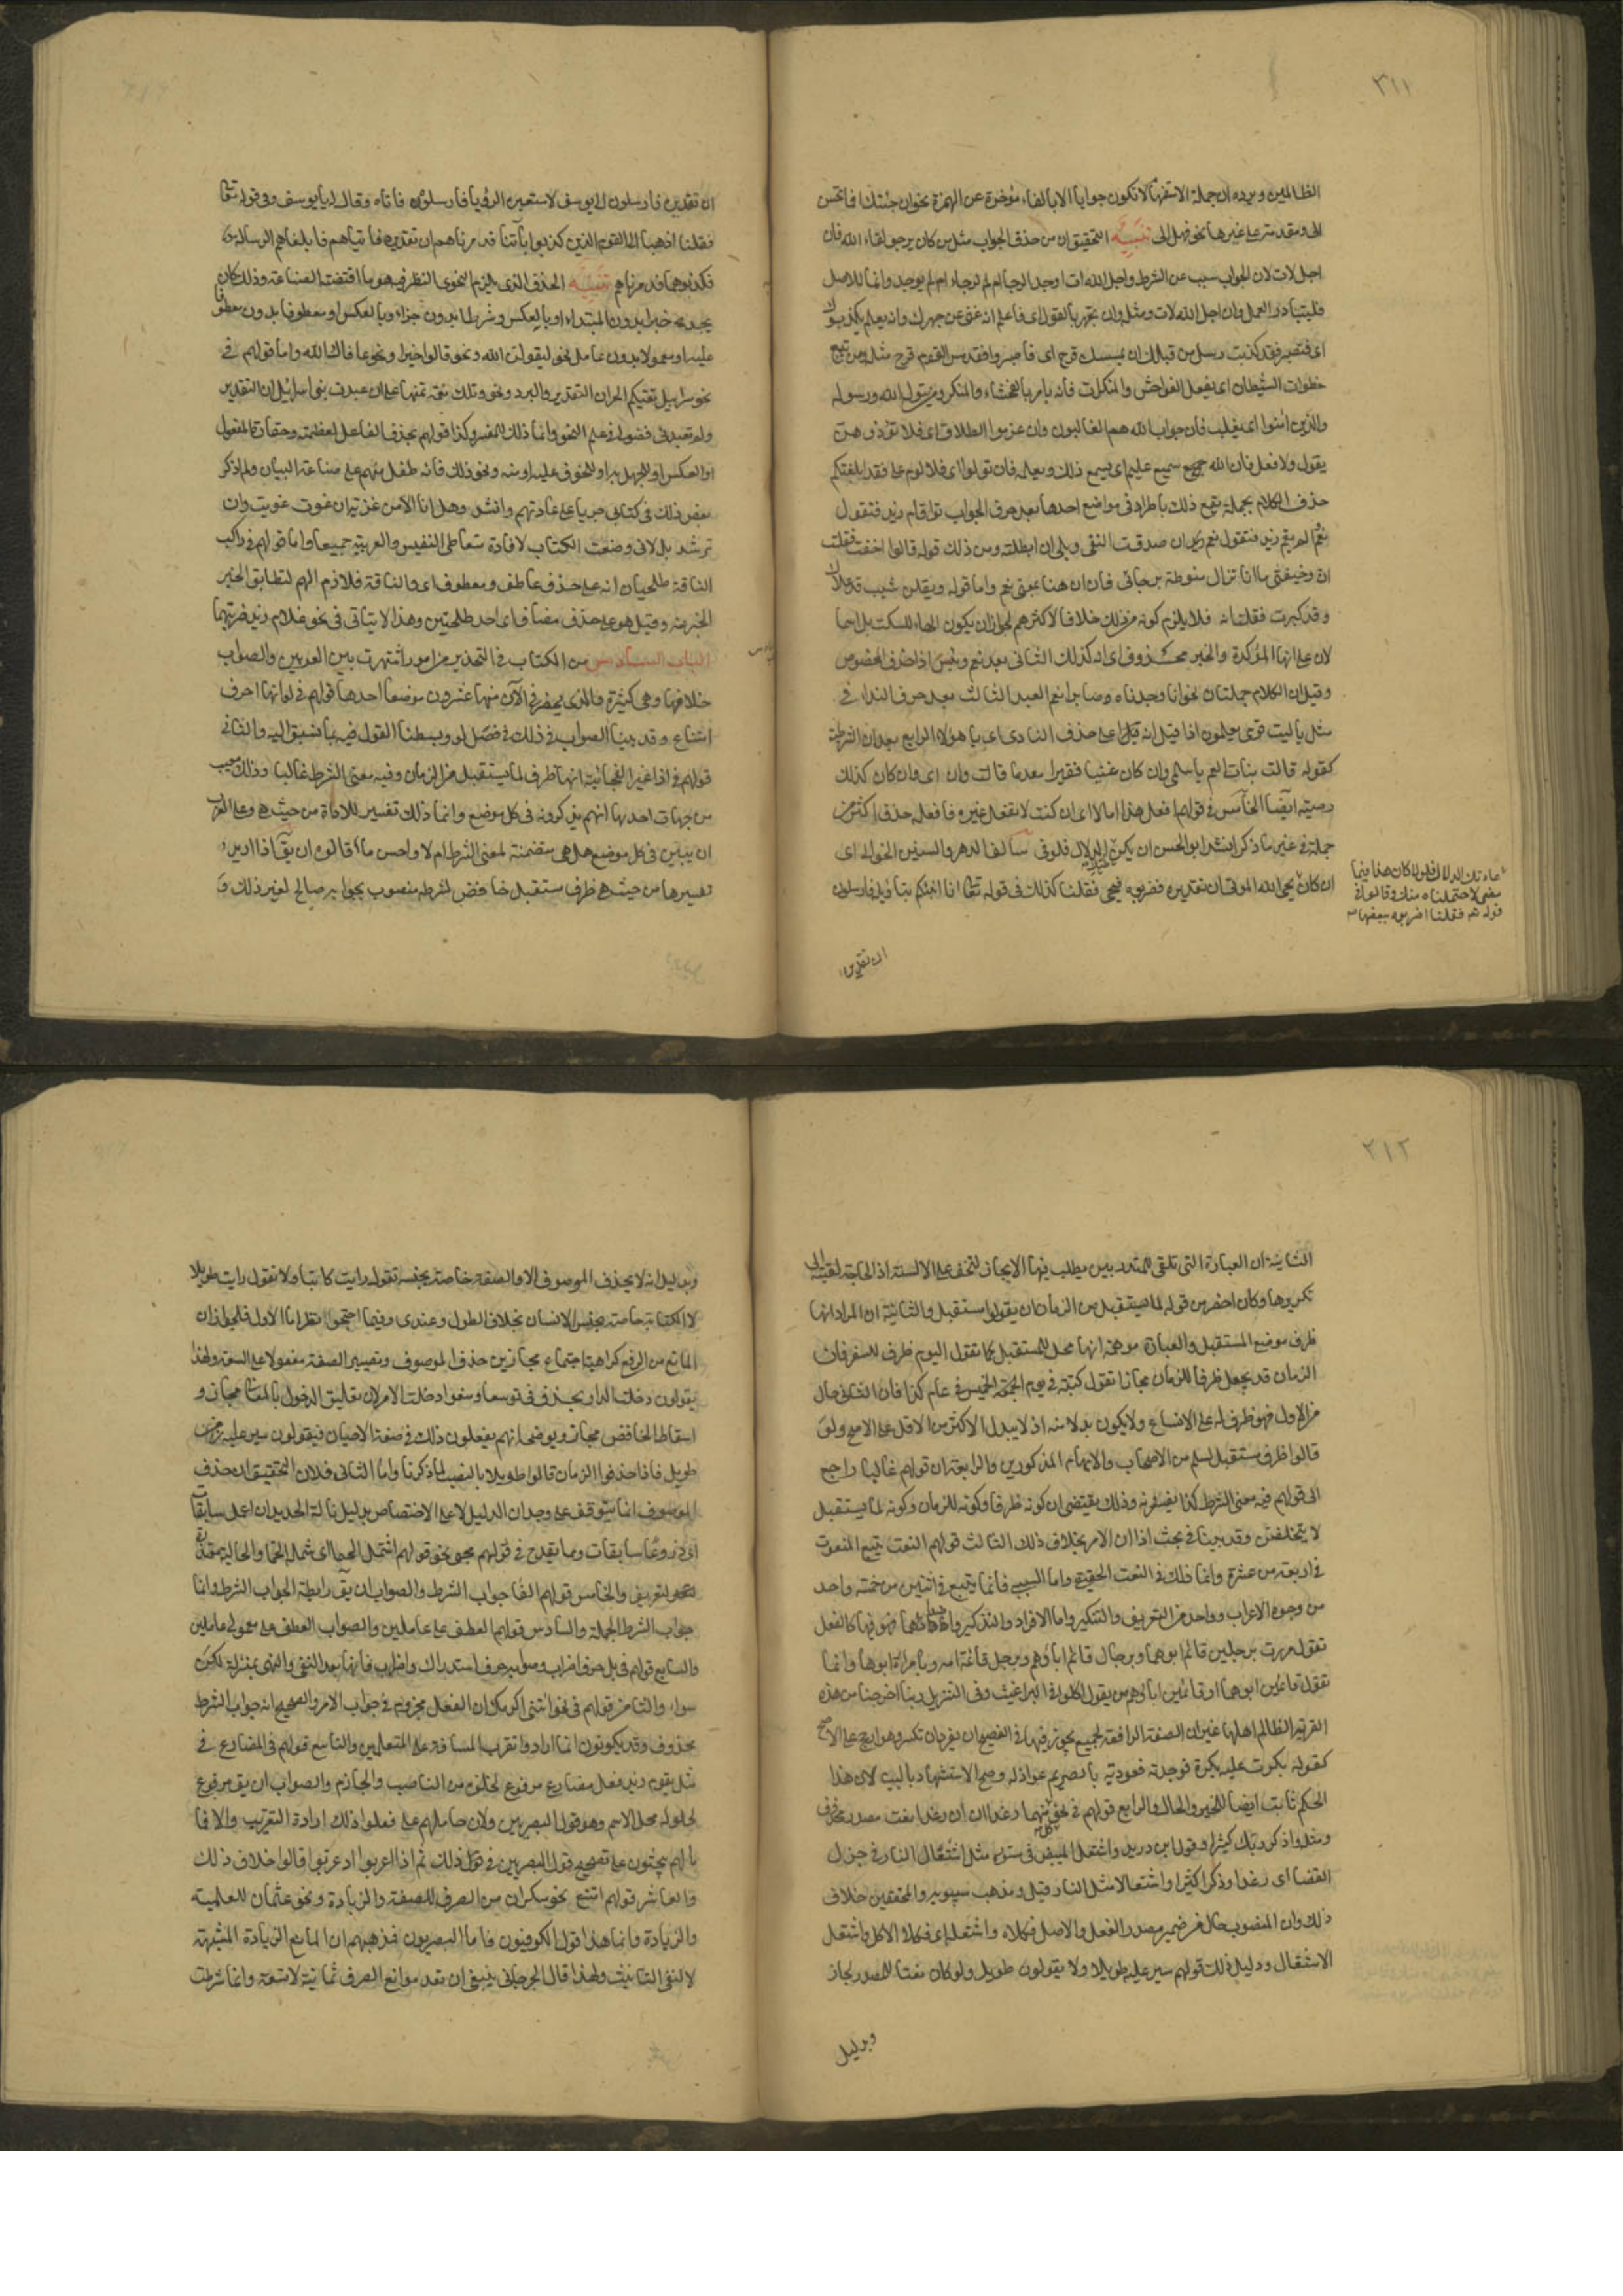 ٣١١
الظالمين ويرده ان جملة الاستفهام لا تكون جوابا الا بالفاء مؤخرة عن الهمزة نحو ان جئتك افما تحسن
الى ومقدمة على غيرها نحو فهل الى تنبيه التحقيق ان من حذف الجواب مثل من كان يرجو لقاء الله فان
اجل لات لان الجواب مسبب عن الشرط واجل الله ات اوجد الرجا ام لم يوجد وانما الاصل
فليبادر العمل فان اجل الله لات ومثل وان تجهر بالقول اى فاعلم انه غنى عن جهرك وانه يعلم يكذبوك
اى فتصبر فقد كذبت رسل من قبلك ان يمسسكم قرح اى فاصبروا فقد مس القوم قرح مثله ومن يتبع
خطوات الشيطان اى يفعل الفواحش والمنكرات فانه يامر بالفحشاء والمنكر ومن يتول الله ورسوله
والذين امنوا اى يغلب فان حزب الله هم الغالبون وان عزموا الطلاق اى فلا تؤذوهن
بقول ولا فعل فان الله سميع عليم اى يسمع ذلك ويعلمه فان تولوا اى فلا لوم على فقد ابلغتكم
حذف الكلام بجملة يقع ذلك باطراد فى مواضع احدها بعد حرف الجواب تقول اقام زيد فتقول
نعم الم يقم زيد فتقول نعم ان صدقت النفى وبلى ان ابطلته ومن ذلك قوله قالوا اخفت فقلت
ان وخيفتى ما ان تزال منوطة برجائى فان ان هنا بمعنى نعم واما قوله ويقلن شيب قد علاك
وقد كبرت فقلت انه فلا يلزم كونه من ذلك خلافا لاكثرهم لجواز ان يكون الهاء للسكت بل اسما
لان على انها المؤكدة والخبر محذوف اى انه كذلك الثانى بعد نعم وبئس اذا حذف المخصوص
وقيل ان الكلام جملتان نحو انا وجدناه صابرا نعم العبد الثالث بعد حرف النداء فى
مثل يا ليت قومى يعلمون اذا قيل انه على حذف المنادى اى يا هؤلاء الرابع بعد ان الشرطية
كقوله قالت بنات العم يا سلمى وان كان غنيا فقيرا معدما قالت وان اى وان كان كذلك
رضيته ايضا الخامس فى قولهم افعل هذا اما لا اى ان كنت لا تفعل غيره فافعله حذف اكثر من
جملة فى غير ما ذكر انشد ابو الحسن ان يكن طبك الدلال فلو فى سالف الدهر والسنين الخوالى اى
ان كان يحيى الله الموتى ان تقديره فضربوه فحيى فقلنا كذلك فى قوله تعالى انا انبئكم بتاويله فارسلون
عادتك الدلال فلو كان هذا فيما
مضى لاحتملناه منك وقالوا فى
قوله تعالى فقلنا اضربوه ببعضها
ان تقديره
ان تقديره فارسلون الى يوسف لاستعبره الرؤيا فارسلوه فاتاه وقال له يا يوسف وفى قوله تعالى
فقلنا اذهبا الى القوم الذين كذبوا باياتنا فدمرناهم ان تقديره فاتياهم فابلغاهم الرسالة
فكذبوهما فدمرناهم تنبيه الحذف الذى يلزم النحوى النظر فيه هو ما اقتضته الصناعة وذلك كان
يجد خبرا بدون المبتداء او بالعكس وشرطا بدون جزاء او بالعكس او معطوفا بدون معطوف
عليه او معمولا بدون عامل نحو ليقولن الله ونحو قالوا خيرا ونحو عافاك الله واما قولهم فى
نحو سرابيل تقيكم الحر ان التقدير والبرد ونحو وتلك نعمة تمنها على ان عبدت بنى اسرائيل ان التقدير
ولم تعبدنى ففضول فى علم النحو وانما ذلك للمفسر وكذا قولهم بحذف الفاعل لعظمته وحقارة المفعول
او بالعكس او للجهل به او للخوف عليه او منه ونحو ذلك فانه تطفل منهم على صناعة البيان ولم اذكر
بعض ذلك فى كتابى جريا على عادتهم وانشد وهل انا الا من غزية ان غوت غويت وان
ترشد بل لانى وضعت الكتاب لافادة متعاطى التفسير والعربية جميعا واما قولهم فى راكب
الناقة طليحان انه على حذف عاطف ومعطوف اى والناقة فلازم لهم لتطابق الخبر
المخبر عنه وقيل هو على حذف مضاف اى احد طليحين وهذا لا يتاتى فى نحو غلام زيد ضربتهما
الباب السادس من الكتاب فى التحذير من امور اشتهرت بين المعربين والصواب
خلافها وهى كثيرة والذى يحضر فى الآن منها عشرون موضعا احدها قولهم فى لو انها حرف
امتناع وقد بينا الصواب فى ذلك فى فصل لو وبسطنا القول فيه بما لم نسبق اليه والثانى
قولهم فى اذا غير الفجائية انها ظرف لما يستقبل من الزمان وفيه معنى الشرط غالبا وذلك معيب
من جهات احدها انهم يذكرونه فى كل موضع وانما ذلك تفسير للاداة من حيث هى وعلى المعرب
ان يبين فى كل موضع هل هى متضمنة لمعنى الشرط ام لا واحسن مما قالوه ان يقال اذا اريد
تفسيرها من حيث هى ظرف مستقبل خافض لشرطه منصوب بجوابه صالح لغير ذلك و
٣١٢
الثانية ان العبارة التى تلقى للمتدربين يطلب فيها الايجاز لتخف على الالسنة اذ الحاجة داعية الى
تكريرها وكان اخصر من قوله لما يستقبل من الزمان ان يقولوا مستقبل والثالثة ان المراد انها
ظرف موضع المستقبل والعبارة موهمة انها محل للمستقبل كما تقول اليوم ظرف للسفر فان
الزمان قد يجعل ظرفا للزمان مجازا تقول كتبته فى يوم الجمعة الخميس فى عام كذا فان الثانى حال
من الاول فهو ظرف له على الاتساع ولا يكون بدلا منه اذ لا يبدل الاكثر من الاقل على الاصح ولو
قالوا ظرف مستقبل لسلم من الاسهاب والايهام المذكورين والرابعة ان قولهم غالبا راجع
الى قولهم فيه معنى الشرط كذا يفسرونه وذلك يقتضى ان كونه ظرفا وكونه للزمان وكونه لما يستقبل
لا يتخلفن وقد بينا فى بحث اذا ان الامر بخلاف ذلك الثالث قولهم النعت يتبع المنعوت
فى اربعة من عشرة وانما ذلك فى النعت الحقيقى واما السببى فانما يتبع فى اثنين من خمسة واحد
من وجوه الاعراب وواحد من التعريف والتنكير واما الافراد والتذكير واضدادهما فهو فيها كالفعل
تقول مررت برجلين قائم ابوهما وبرجال قائم اباؤهم وبرجل قائمة امه وبامراة قائم ابوها وانما
تقول قائمين ابوهما او قائمين اباؤهم من يقول اكلونى البراغيث وفى التنزيل ربنا اخرجنا من هذه
القرية الظالم اهلها غير ان الصفة الرافعة لجمع يجوز فيها فى الفصيح ان تفرد وان تكسر وهو ارجح على الاصح
كقوله بكرت عليه بكرة فوجدته قعودا لديه بالصريم عواذله وصح الاستشهاد بالبيت لان هذا
الحكم ثابت ايضا للخبر والحال والرابع قولهم فى نحو كلا منها رغدا ان رغدا نعت مصدر محذوف
ومثله واذكر ربك كثيرا وقول ابن دريد واشتعل المبيض فى مسوده مثل اشتعال النار فى جزل
الغضا اى رغدا وذكرا كثيرا واشتعالا مثل النار قيل ومذهب سيبويه والمحققين خلاف
ذلك وان المنصوب حال من ضمير مصدر الفعل والاصل فكلاه واشتعله اى فكلا الاكل واشتعل
الاشتعال ودليل ذلك قولهم سير عليه طويلا ولا يقولون طويل ولو كان نعتا للمصدر لجاز
وبدليل
وبدليل انه لا يحذف الموصوف الا والصفة خاصة بجنسه تقول رايت كاتبا ولا تقول رايت طويلا
لان الكتابة خاصة بجنس الانسان بخلاف الطول وعندى وفيما احتجوا نظر اما الاول فلجواز ان
المانع من الرفع كراهية اجتماع مجازين حذف الموصوف وتصيير الصفة مفعولا على السعة ولهذا
يقولون دخلت الدار بحذف فى توسعا ومنعوا دخلت الامر لان تعليق الدخول بالمعانى مجاز و
اسقاط الخافض مجاز ويوضحه انهم يفعلون ذلك فى صفة الاحيان فيقولون سير عليه زمن
طويل فاذا حذفوا الزمان قالوا طويلا بالنصب لما ذكرنا واما الثانى فلان التحقيق ان حذف
الموصوف انما يتوقف على وجدان الدليل لا على الاختصاص بدليل والنا له الحديد ان اعمل سابغات
اى دروعا سابغات ومما يقدح فى قولهم مجى نحو قولهم اشتمل الصماء اى الشملة الصماء والحالية متعذرة
لتعريفه والخامس قولهم الفا جواب الشرط والصواب ان يقال رابطة لجواب الشرط وانما
جواب الشرط الجملة والسادس قولهم العطف على عاملين والصواب العطف على معمولى عاملين
والسابع قولهم فى بل حرف اضراب وصوابه حرف استدراك واضراب فانها بعد النفى والنهى بمنزلة لكن
سواء والثامن قولهم فى نحو ائتنى اكرمك ان الفعل مجزوم فى جواب الامر والصحيح انه جواب الشرط
محذوف وقد يكونون انما ارادوا تقريب المسافة على المتعلمين والتاسع قولهم فى المضارع فى
مثل يقوم زيد فعل مضارع مرفوع لخلوه من الناصب والجازم والصواب ان يقال مرفوع
لحلوله محل الاسم وهو قول البصريين وكان حاملهم على ما فعلوا ذلك ارادة التقريب والا فما
بالهم يبحثون على تصحيح قول البصريين فى ذلك ثم اذا اعربوا او عربوا قالوا خلاف ذلك
والعاشر قولهم امتنع نحو سكران من الصرف للصفة والزيادة ونحو عثمان للعلمية
والزيادة وانما هذا قول الكوفيون فاما البصريون فمذهبهم ان المانع الزيادة المشبهة
لالفى التانيث ولهذا قال الجرجانى ينبغى ان تعد موانع الصرف ثمانية لا تسعة وانما شرطت